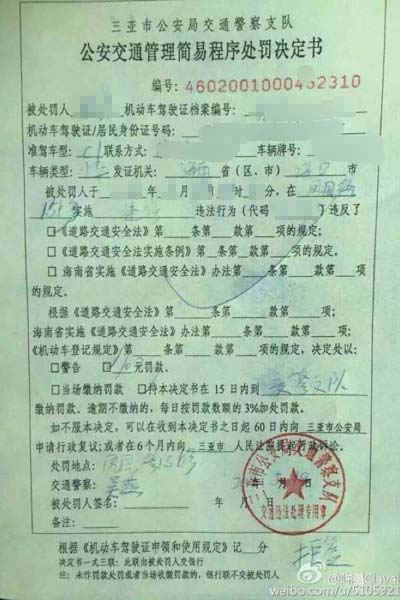 三亚市公安局交通警察支队
公安交通管理简易程序处罚决定书
编号: 4602001000432310
被处罚人 机动车驾驶证档案编号:
机动车驾驶证/居民身份证号码:
准驾车型: C1 联系方式: 车辆牌号:
车辆类型: 发证机关: 海南 省(区、市) 市
被处罚人于 年 月 日 时 分,在
实施 违法行为(代码 )违反了
□《道路交通安全法》第 条第 款第 项的规定;
□《道路交通安全法实施条例》第 条第 款第 项的规定。
□海南省实施《道路交通安全法》办法第 条第 款第 项
的规定。
根据《道路交通安全法》第 条第 款第 项;
海南省实施《道路交通安全法》办法第 条第 款第 项;
《机动车登记规定》第 条第 款第 项的规定,决定处以:
□警告 □ 元罚款。
□当场缴纳罚款 □持本决定书在15日内到 交警支队
缴纳罚款。逾期不缴纳的,每日按罚款数额的3%加处罚款。
如不服本决定,可以在收到本决定书之日起60日内向 三亚市公安局
申请行政复议;或者在6个月内向 三亚市 人民法院提起行政诉讼。
处罚地点:
交通警察: 年 月 日
被处罚人签名: 年 月 日
备注:
三亚市公安局交通警察支队
交通违法处理专用章
拒签
根据《机动车驾驶证申领和使用规定》记 分
决定书一式三联:此联由被处罚人交银行
注:未作罚款处罚或者当场缴纳罚款的,银行联不交被处罚人
weibo.com/u/5105921